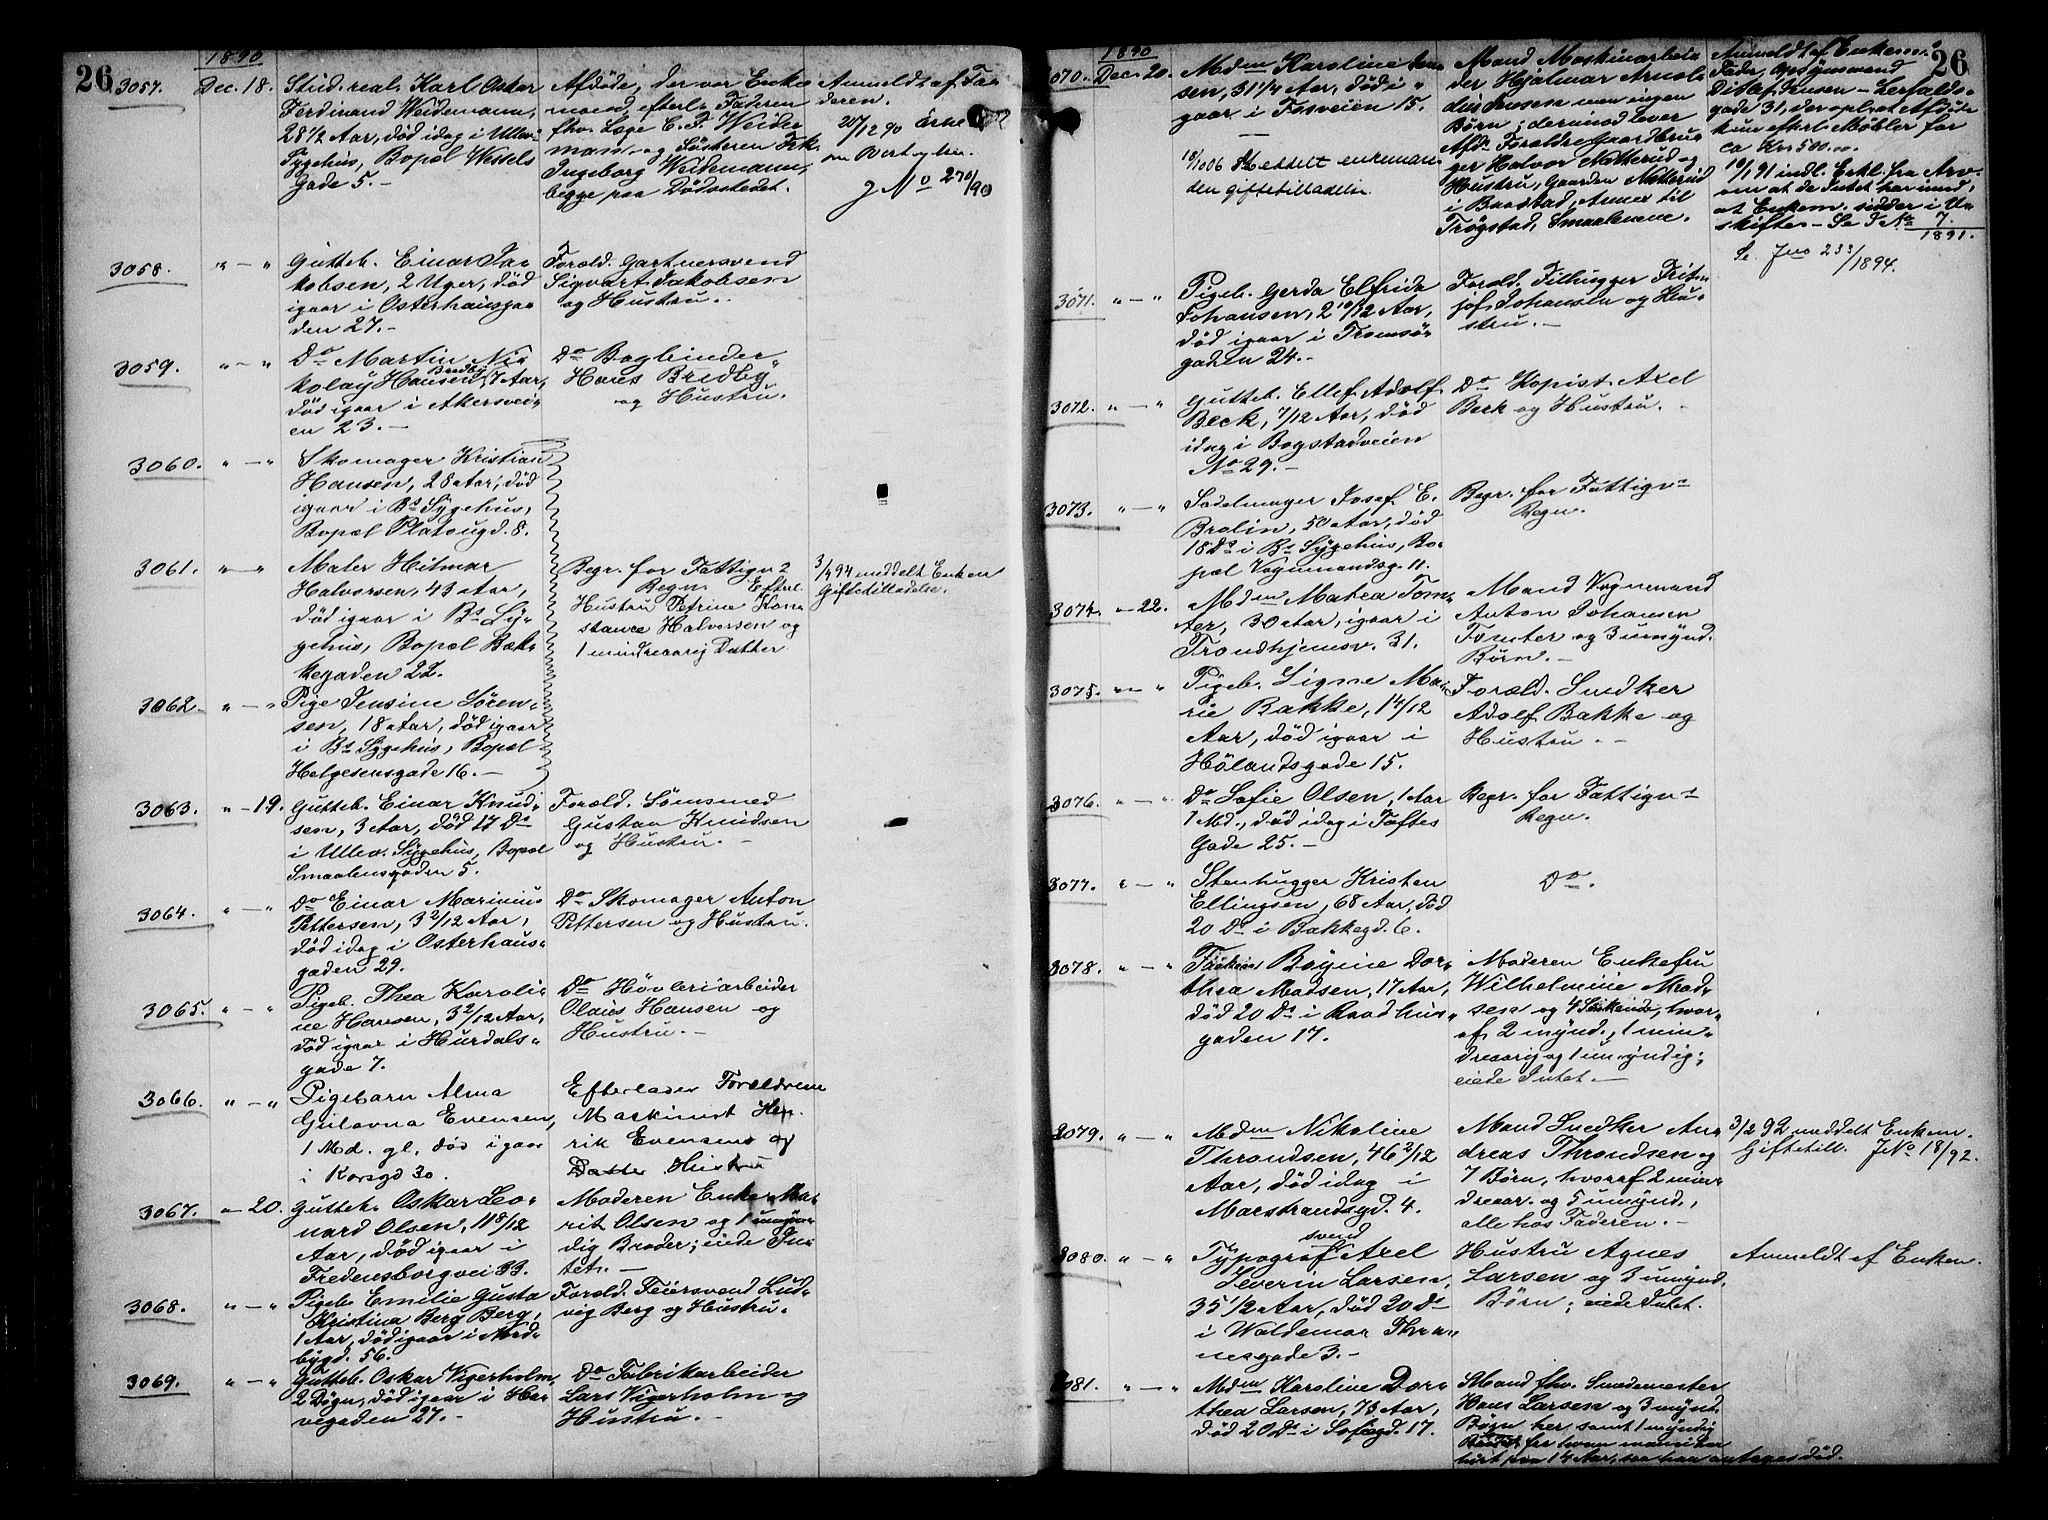 26
1890
3057. Dec. 18. Stud. real. Karl Oskar
Ferdinand Weidemann,
28 1/2 Aar, død idag i Ullev.
Sygehus, Bopæl Wessels
Gade 5.-
Afdøde, der var Enke
mand, efterl. Faderen
fhv. Læge C. F. Weide
mann og Søsteren Frk.
Ingeborg Weidemann,
begge paa Dødsstedet.
Anmeldt af Fa
deren.
20/12 90
J No 270/90
3058. " - " Gutteb. Einar Ja=
kobsen, 2 Uger, død
igaar i Osterhausga=
den 27.-
Foræld. Gartnersvend
Sigvart Jakobsen
og Hustru.
3059. " - " Do Martin Ni=
kolay Hansen Bredby, 17 Aar,
død igaar i Akersvei=
en 23.-
Do Bogbinder
Hans Bredby
og Hustru.
3060. " - " Skomager Kristian
Hansen, 28 Aar, død
igaar i Bs Sygehus,
Bopæl Platougd. 8.
3061. " - " Maler Hilmar
Halvorsen, 43 Aar,
død igaar i Bs Sy=
gehus, Bopæl Bak=
kegaden 22.
Begr. for Fattigv.s
Regn. Efterl.
Hustru Petrine Kon=
stance Halvorsen og
1 mindreaarig Datter
3/4 94 meddelt Enken
Giftetilladelse.
3062. " - " Pige Jensine Søren=
sen, 18 Aar, død igaar
i Bs Sygehus, Bopæl
Helgesensgade 16.-
3063. " - 19. Gutteb. Einar Knud=
sen, 3 Aar, død 17 Ds
i Ullev. Sygehus, Bopæl
Smaalensgaden 5.
Foræld. Sømsmed
Gustav Knudsen
og Hustru.-
3064. " - " Do Einar Marinius
Pettersen, 3 2/12 Aar,
død idag i Osterhaus=
gaden 29.
Do Skomager Anton
Pettersen og Hustru.
3065. " - " Pigeb. Thea Karoli=
ne Hansen, 3 2/12 Aar,
død igaar i Hurdals=
gade 7.
Do Høvleriarbeider
Olaus Hansen og
Hustru.-
3066. " - " Pigebarn Alma
Gulovna Evensen,
1 Md. gl, død igaar
i Korsgd 30.
Efterlader Forældrene
Maskinist Hen=
rik Evensen og
Hustru
3067. " - 20. Gutteb. Oskar Leo=
nard Olsen, 11 8/12
Aar, død igaar i
Fredensborgvei 33.
Moderen Enke Ma=
rit Olsen og 1 umyn=
dig Broder; eiede In=
tet.-
3068. " - " Pigeb. Emilie Gusta
Kristina Berg Berg,
1 Aar, død igaar i Nord=
bygd. 56.
Foræld. Feiersvend Lud=
vig Berg og Hustru.
3069. " - " Gutteb. Oskar Vigerholm,
2 Døgn, død igaar i Hær
vegaden 27.-
Do Fabrikarbeider
Lars Vigerholm og
Hustru.-
26
1890
3070. Dec. 20. Mdm Karoline Jen=
sen, 31 1/4 Aar, død i
gaar i Fosveien 15.
18/10 06 Meddelt enkeman
den giftetilladelse
Mand Maskinarbei=
der Hjalmar Arnol=
dus Jensen men ingen
Børn; derimod lever
Afd. Forældre Gaardbru=
ger Halvor Nøtterud og
Hustru, Gaarden Nøtterud
i Baastad, Annex til
Trøgstad, Smaalenene.
Anmeldt af Enkem.s
Fader, Opsynsmand
Ditlef Jensen - Herslebs=
gade 31, der oplyst Afdøde
kun efterl. Møbler for
ca Kr 500.00.
10/1 91 indl. Erkl. fra Arv.
om at de Intet har imod,
at Enkem. sidder i U=
skifte - Se J No 7/1891.
Se Jno 233/1894.
3071. " - " Pigeb. Gerda Elfrida
Johansen, 2 10/12 Aar,
død igaar i Tromsø=
gaden 24.-
Foræld. Filhugger Frit=
jof Johansen og Hu=
stru.-
3072. " - " Gutteb. Ellef Adolf
Beck, 7/12 Aar, død
idag i Bogstadveien
No 29.-
Do Kopist Axel
Beck og Hustru.
3073. " - " Sadelmager Josef E.
Brolin, 50 Aar, død
18 Ds i Bs Sygehus, Bo=
pæl Vognmandsg. 11.
Begr. for Fattigv.s
Regn.
3074. " - 22. Mdm Mathea Tom=
ter, 30 Aar, igaar i
Trondhjemsv. 31.
Mand Vognmand
Anton Johansen
Tomter og 3 umynd.
Børn.-
3075. " - " Pigeb. Signe Ma=
rie Bakke, 1 4/12
Aar, død igaar i
Hølandsgade 15.
Foræld. Snedker
Adolf Bakke og
Hustru.-
3076. " - " Do Sofie Olsen, 1 Aar
1 Md., død idag i Toftes
Gade 25.-
Begr. for Fattigv.s
Regn.
3077. " - " Stenhugger Kristen
Ellingsen, 68 Aar, død
20 Ds i Bakkegd. 6.
Do.
3078. " - " Frøken Boyine Dor=
thea Madsen, 17 Aar,
død 20 Ds i Raadhus=
gaden 17.
Moderen Enkefru
Wilhelmine Mad=
sen og 4 Søskende, hvor=
af 2 mynd., 1 min=
dreaarig og 1 umyndig;
eiede Intet.-
3079. " - " Mdm Nikoline
Throndsen, 46 2/12
Aar, død idag i
Marstrandsgd. 4.
Mand Snedker An=
dreas Throndsen og
7 Børn, hvoraf 2 min=
dreaar. og 5 umynd.,
alle hos Faderen.-
3/2 92 meddelt Enkem.
Giftetill. JNo 18/92.
3080. " - " Typografsvend Axel
Severin Larsen,
35 1/2 Aar, død 20 Ds
i Waldemar Thra=
nesgade 3.-
Hustru Agnes
Larsen og 3 umynd.
Børn; eiede Intet.
Anmeldt af Enken.
3081. " - " Mdm Karoline Doro=
thea Larsen, 73 Aar,
død 20 Ds i Sofiegd. 17.
Mand fhv. Smedemester
Hans Larsen og 3 mynd.
Børn her samt 1 myndig
for hvem man ikke har
hørt paa 14 Aar, saa han antages død.